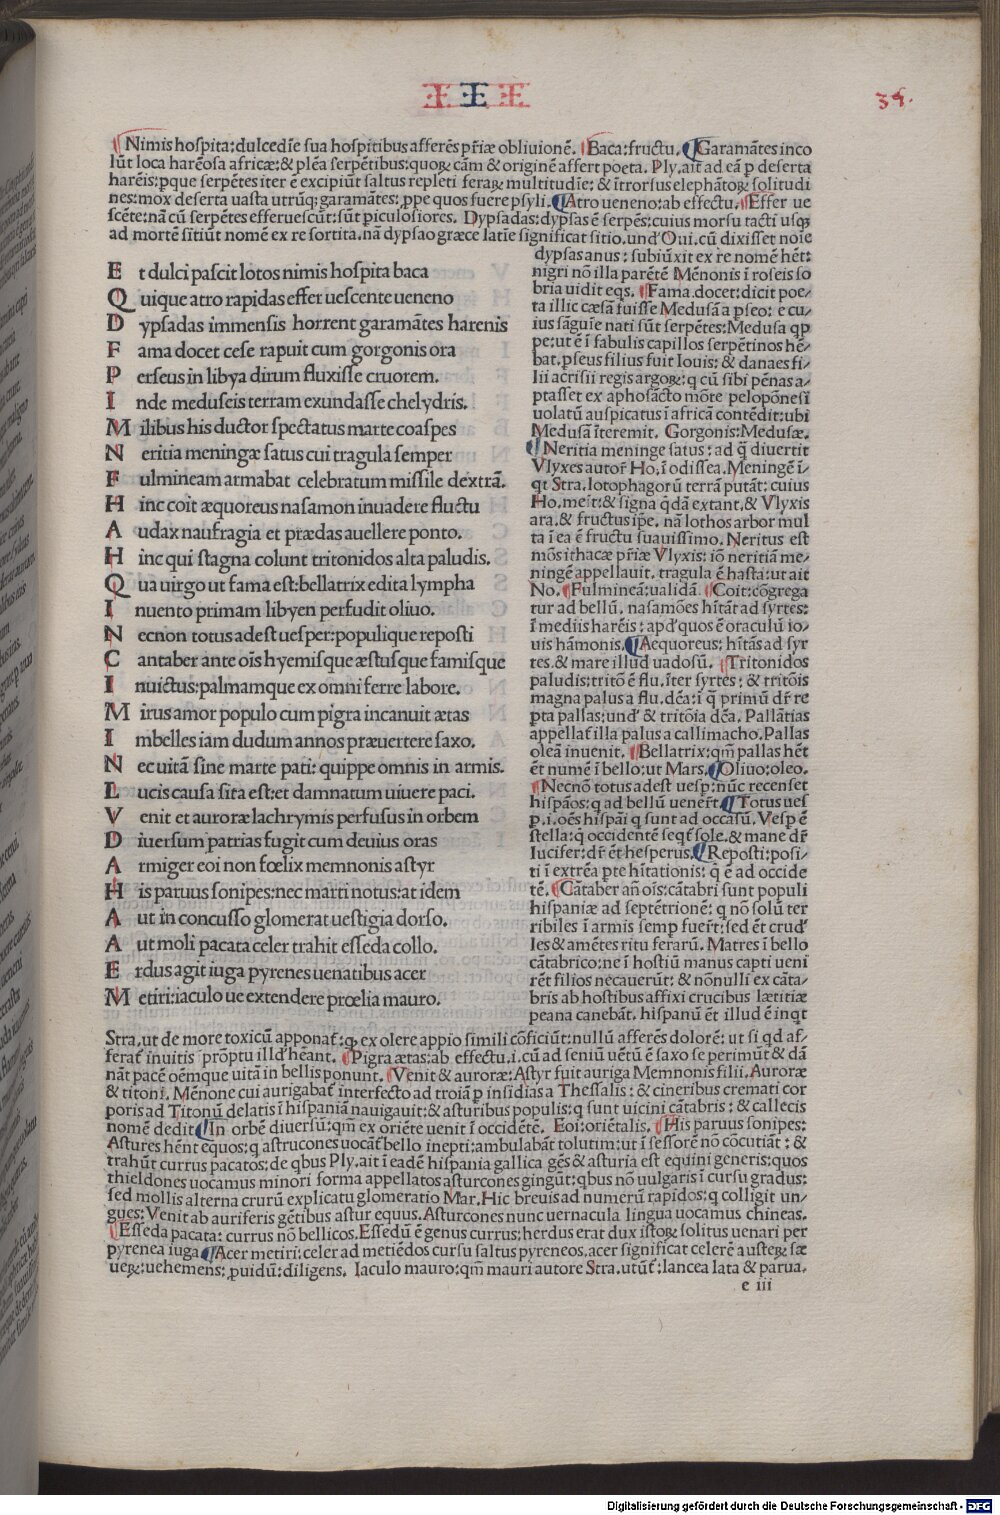 ·I· ·I· ·I·
34.
Nimis hospita:dulcedīe sua hospitibus afferēs pr̄iæ obliuionē. Baca:fructu. Garamātes inco
lūt loca harēosa africæ:& plēa serpētibus:quoꝝ cām & originē affert poeta. Ply.ait ad eā p deserta
harēis:pque serpētes iter ē excipiūt saltus repleti feraꝝ multitudīe:& ītrorsus elephātoꝝ solitudi
nes:mox deserta uasta utrūq;garamātes:ꝓpe quos fuere psyli. Atro ueneno:ab effectu. Effer ue
scēte:nā cū serpētes efferuescūt:sūt piculosiores. Dypsadas:dypsas ē serpēs:cuius morsu tacti usq;
ad mortē sitiūt nomē ex re sortita.nā dypsao græce latīe significat sitio.und' Oui.cū dixisset noīe
dypsas anus : subiūxit ex re nomē hēt:
nigri nō illa parētē Mēnonis ī roseis so
bria uidit eqs. Fama docet:dicit poe-
ta illic cæsā fuisse Medusā a pseo: e cu-
ius sāguīe nati sūt serpētes:Medusa qp
pe:ut ē ī fabulis capillos serpētinos hē-
bat.pseus filius fuit Iouis:& danaes fi-
lii acrisii regis argoꝝ:q cū sibi pēnas a-
ptasset ex aphosācto mōte pelopōnesi
uolatū auspicatus ī africā contēdit:ubi
Medusā īteremit. Gorgonis:Medusæ.
Neritia meninge satus : ad q̄ diuertit
Vlyxes autor̄ Ho.ī odissea.Meningē ī-
qt Stra.lotophagorū terrā putāt: cuius
Ho.meīt:& signa q̄dā extant,& Vlyxis
ara.& fructus ip̄e. nā lothos arbor mul
ta ī ea ē fructu suauissimo. Neritus est
mōs ithacæ pr̄iæ Vlyxis: iō neritiā me-
ningē appellauit. tragula ē hasta:ut ait
No. Fulmineā:ualidā. Coit:cōgrega
tur ad bellū. nasamōes hītāt ad syrtes:
ī mediis harēis : apd' quos ē oraculū io-
uis hāmonis. Aequoreus: hītās ad syr
tes.& mare illud uadosū. Tritonidos
paludis:tritō ē flu.īter syrtes : & tritōis
magna palus a flu.dc̄a: ī q̄ primū dr̄ re
pta pallas:und' & tritōia dc̄a. Pallātias
appellaī illa palus a callimacho.Pallas
oleā inuenit. Bellatrix:qm̄ pallas hēt
ēt numē ī bello:ut Mars. Oliuo:oleo.
Necnō totus adest uesp:nūc recenset
hispāos:q ad bellū uener̄t. Totus ues
p.i.oēs hispāi q sunt ad occasū. Vesp ē
stella:q̄ occidentē seqt̄ sole.& mane dr̄
lucifer:dr̄ ēt hesperus. Reposti:posi-
ti ī extrēa pte hītationis: q̄ ē ad occide
tē. Cātaber añ oīs:cātabri sunt populi
hispaniæ ad septētrionē: q nō solū ter
ribiles ī armis semp fuer̄t:sed ēt crud'
les & amētes ritu ferarū. Matres ī bello
cātabrico:ne ī hostiū manus capti ueni
rēt filios necauerūt: & nōnulli ex cāta-
bris ab hostibus affixi crucibus lætitiæ
peana canebāt. hispanū ēt illud ē inqt
E t dulci pascit lotos nimis hospita baca
Q uique atro rapidas effer uescente ueneno
D ypsadas immensis horrent garamātes harenis
F ama docet cese rapuit cum gorgonis ora
P erseus in libya dirum fluxisse cruorem.
I nde meduseis terram exundasse chelydris.
M ilibus his ductor spectatus marte coaspes
N eritia meningæ satus cui tragula semper
F ulmineam armabat celebratum missile dextrā.
H inc coit æquoreus nasamon inuadere fluctu
A udax naufragia et prædas auellere ponto.
H inc qui stagna colunt tritonidos alta paludis.
Q ua uirgo ut fama est:bellatrix edita lympha
I nuento primam libyen perfudit oliuo.
N ecnon totus adest uesper:populique reposti
C antaber ante oīs hyemisque æstusque famisque
I nuictus:palmamque ex omni ferre labore.
M irus amor populo cum pigra incanuit ætas
I mbelles iam dudum annos præuertere saxo.
N ec uitā sine marte pati: quippe omnis in armis.
L ucis causa sita est:et damnatum uiuere paci.
V enit et auroræ lachrymis perfusus in orbem
D iuersum patrias fugit cum deuius oras
A rmiger eoi non fœlix memnonis astyr
H is paruus sonipes:nec marti notus:at idem
A ut in concusso glomerat uestigia dorso.
A ut moli pacata celer trahit esseda collo.
E rdus agit iuga pyrenes uenatibus acer
M etiri:iaculo ue extendere prœlia mauro.
Stra.ut de more toxicū apponaī: qp ex olere appio simili cōficiūt:nullū afferēs dolorē: ut si qd af-
feraī inuitis prōptu illd' hēant. Pigra ætas:ab effectu.i.cū ad seniū uētū ē saxo se perimūt & dā
nāt pacē oēmque uitā in bellis ponunt. Venit & auroræ: Astyr fuit auriga Memnonis filii.Auroræ
& titoni. Mēnone cui aurigabaī interfecto ad troiā p insidias a Thessalis : & cineribus cremati cor
poris ad Titonū delatis ī hispaniā nauigauit:& asturibus populis:q sunt uicini cātabris : & callecis
nomē dedit. In orbē diuersū:qm̄ ex oriēte uenit ī occidētē. Eoi:oriētalis. His paruus sonipes:
Astures hēnt equos:q astrucones uocāī bello inepti:ambulabāt tolutim:ut ī sessorē nō cōcutiāt : &
trahūt currus pacatos:de qbus Ply.ait ī eadē hispania gallica gēs & asturia est equini generis:quos
thieldones uocamus minori forma appellatos asturcones gingūt:qbus nō uulgaris ī cursu gradus:
sed mollis alterna crurū explicatu glomeratio Mar.Hic breuis ad numerū rapidos:q colligit un-
gues:Venit ab auriferis gētibus astur equus.Asturcones nunc uernacula lingua uocamus chineas.
Esseda pacata: currus nō bellicos.Essedū ē genus currus:herdus erat dux istoꝝ solitus uenari per
pyrenea iuga Acer metiri:celer ad metiēdos cursu saltus pyreneos.acer significat celerē austeꝝ sæ
ueꝝ:uehemens:ꝓuidū:diligens. Iaculo mauro:qm̄ mauri autore Stra.utūī:lancea lata & parua.
e iii
Digitalisierung gefördert durch die Deutsche Forschungsgemeinschaft - DFG